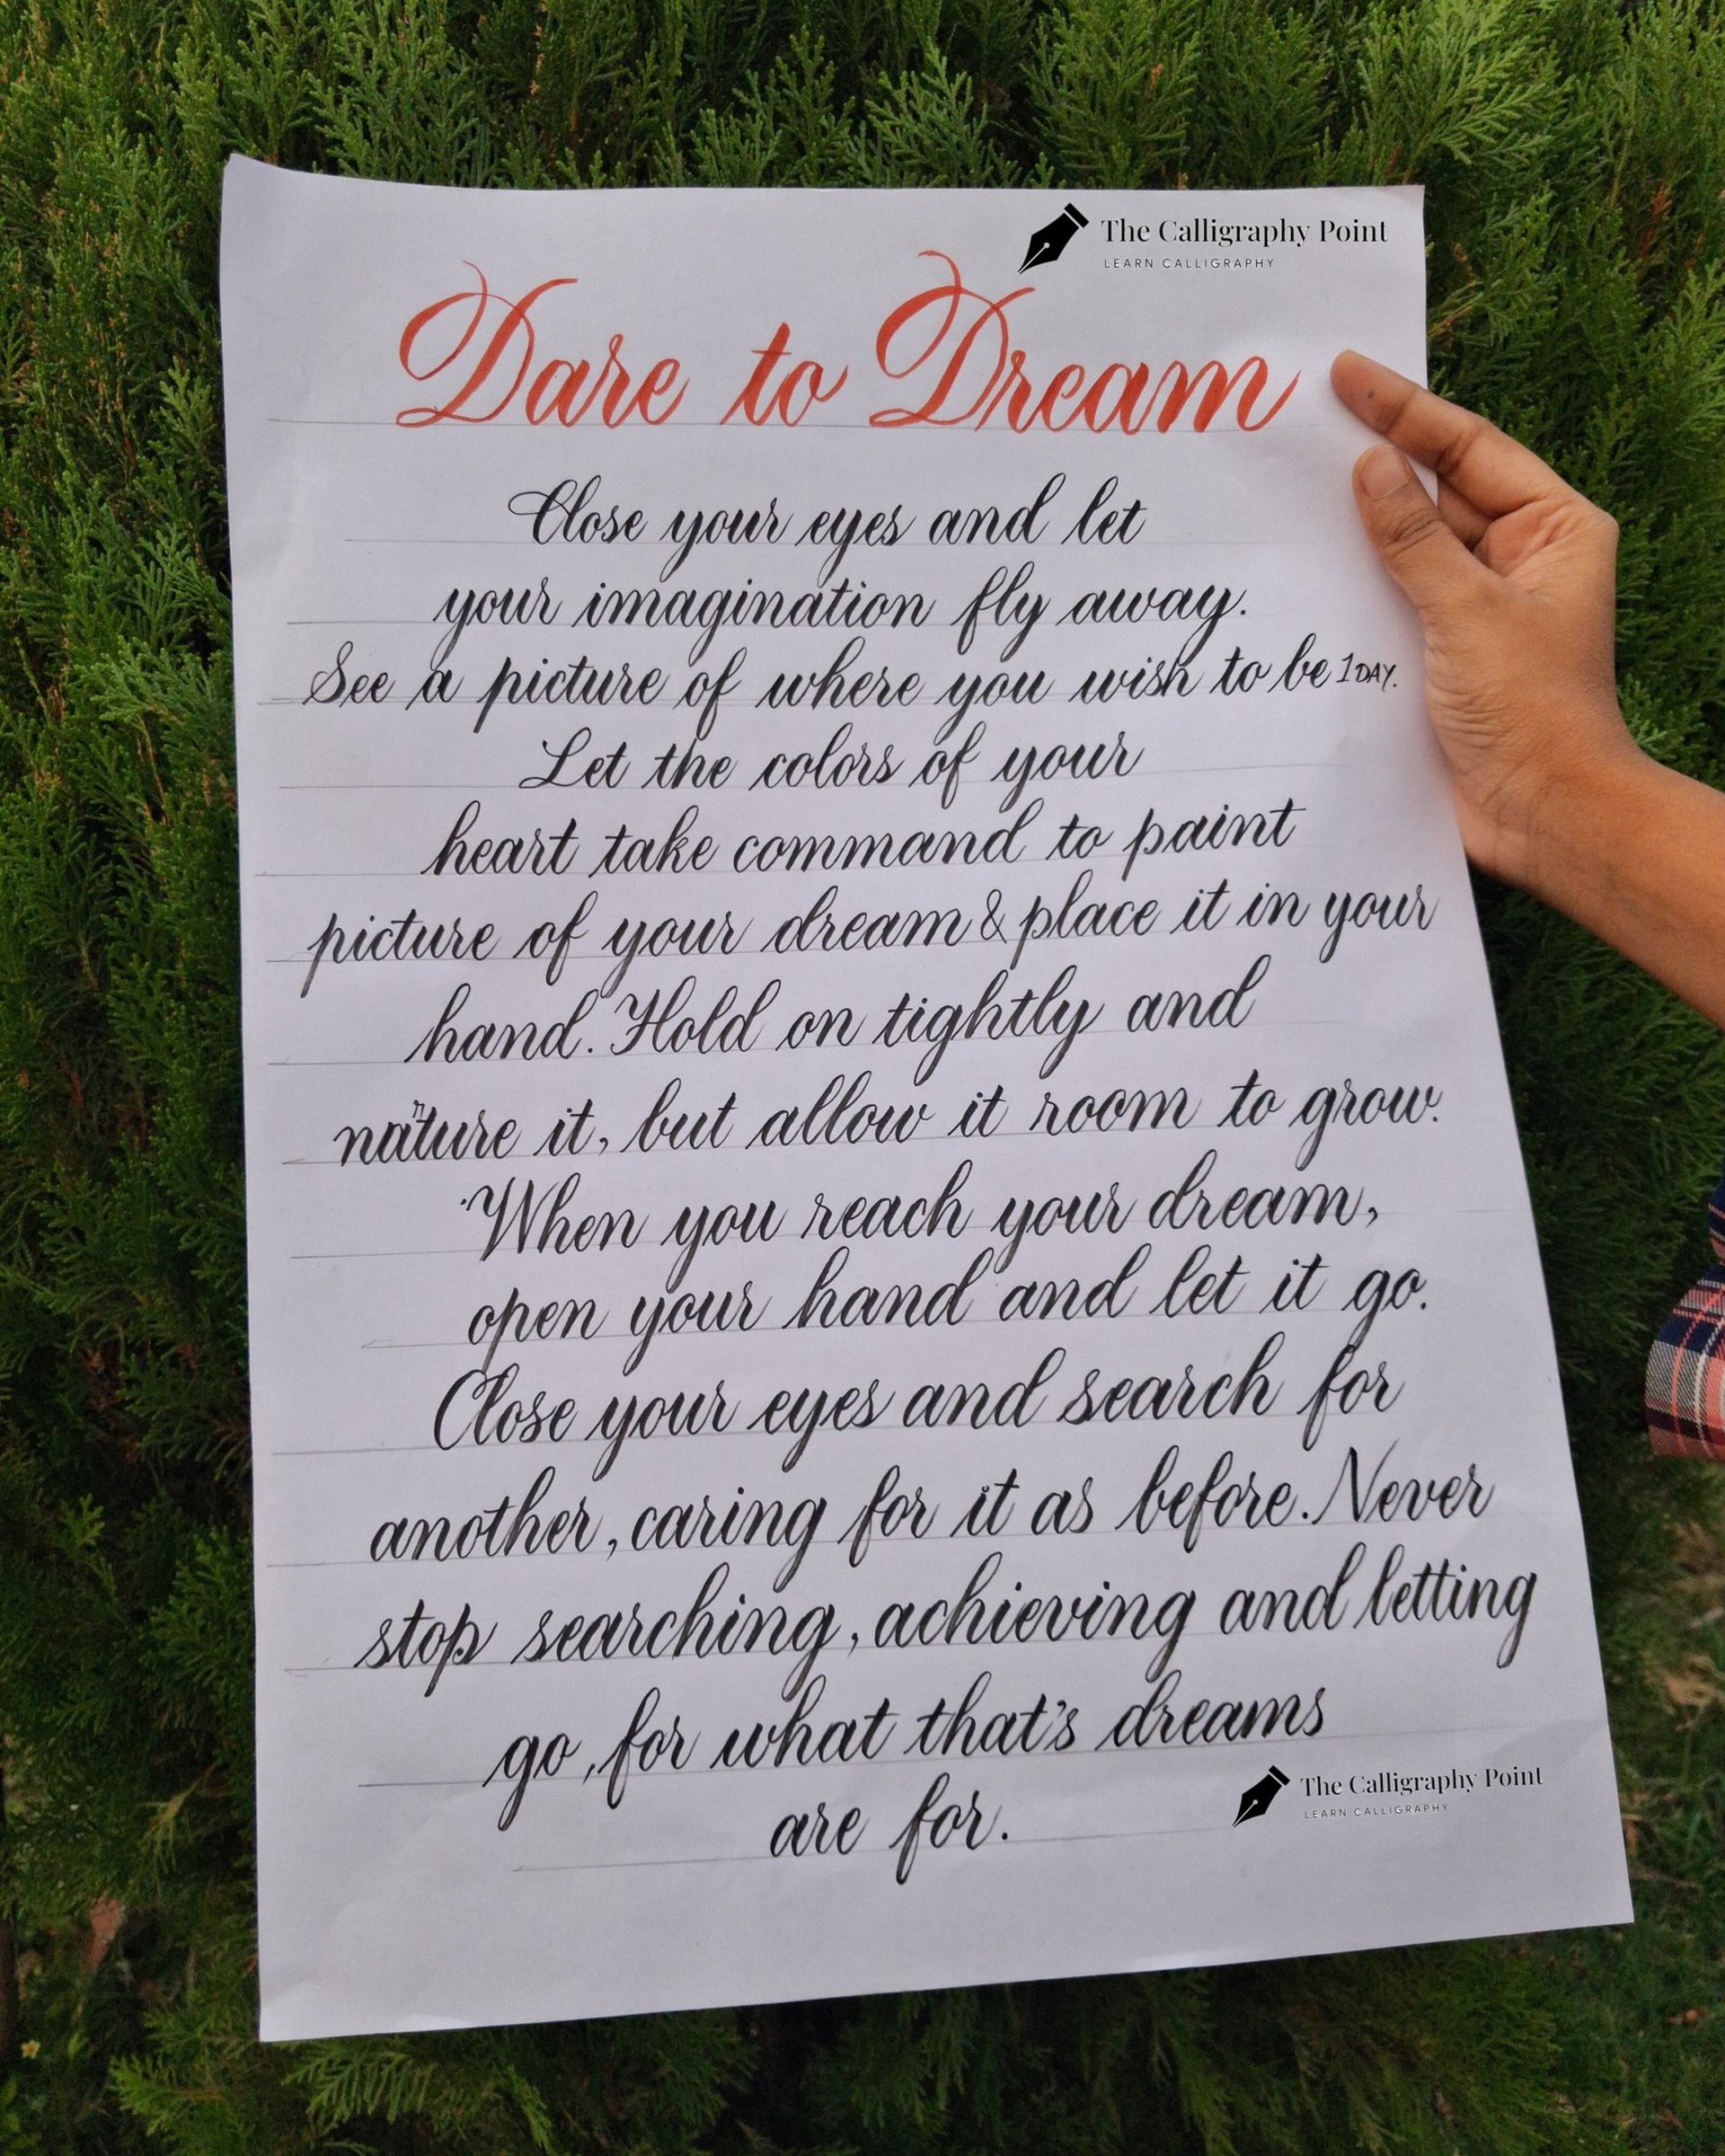 The Calligraphy Point
LEARN CALLIGRAPHY
Dare to Dream
Close your eyes and let
your imagination fly away.
See a picture of where you wish to be 1 DAY.
Let the colors of your
heart take command to paint
picture of your dream & place it in your
hand. Hold on tightly and
nature it, but allow it room to grow.
When you reach your dream,
open your hand and let it go.
Close your eyes and search for
another, caring for it as before. Never
stop searching, achieving and letting
go, for what that's dreams
are for.
The Calligraphy Point
LEARN CALLIGRAPHY